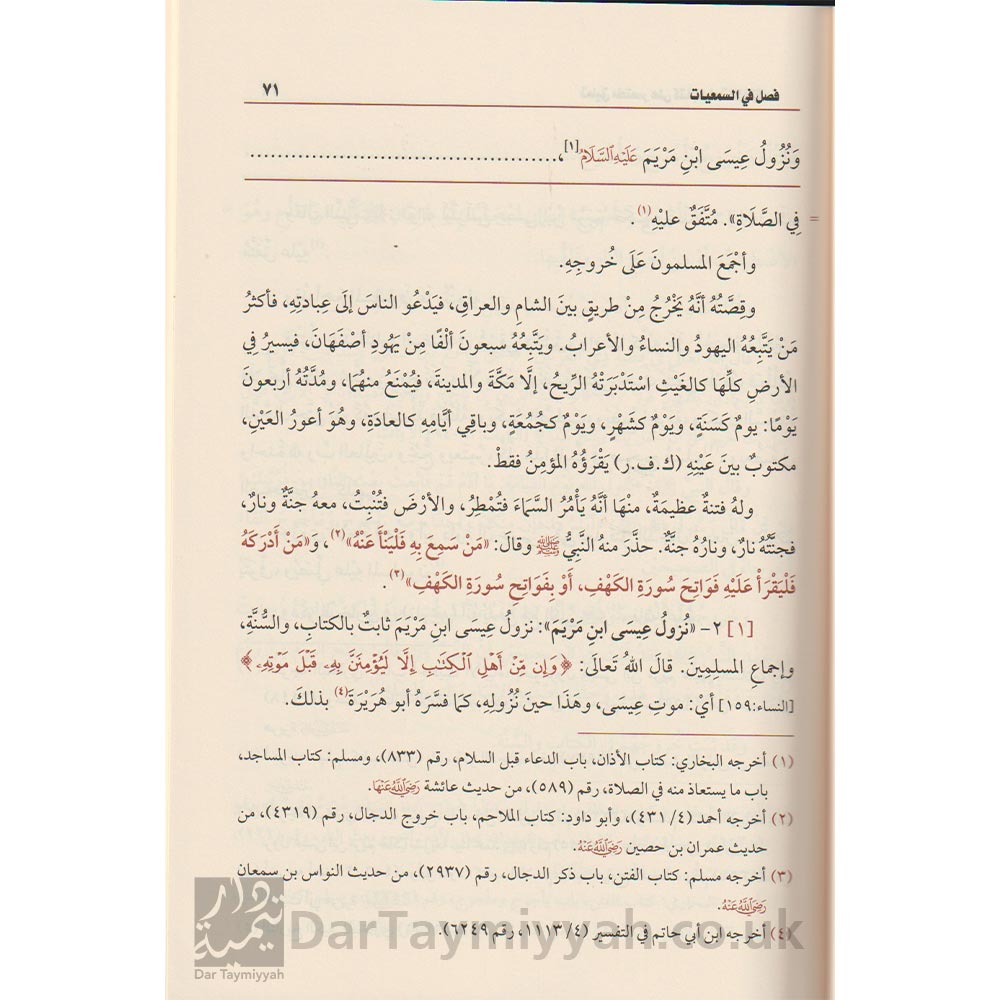 فصل في السمعيات ٧١
وَنُزُولُ عِيسَى ابْنِ مَرْيَمَ عَلَيْهِ السَّلَامُ[١]،............................................
= فِي الصَّلَاةِ». مُتَّفَقٌ عليْهِ(١).
وأجْمَعَ المسلمونَ عَلَى خُروجِهِ.
وقِصَّتُهُ أنَّهُ يَخْرُجُ مِنْ طريقٍ بينَ الشامِ والعراقِ، فيَدْعُو الناسَ إلَى عِبادتِهِ، فأكثرُ
مَنْ يَتَّبِعُهُ اليهودُ والنساءُ والأعرابُ. ويَتَّبِعُهُ سبعونَ ألْفًا مِنْ يَهُودِ أصْفَهَانَ، فيسيرُ فِي
الأرضِ كلِّهَا كالغَيْثِ اسْتَدْبَرَتْهُ الرِّيحُ، إلَّا مَكَّةَ والمدينةَ، فيُمْنَعُ منهُمَا، ومُدَّتُهُ أربعونَ
يَوْمًا: يومٌ كَسَنَةٍ، ويَوْمٌ كشَهْرٍ، ويَوْمٌ كجُمُعَةٍ، وباقِي أيَّامِهِ كالعادَةِ، وهُوَ أعورُ العَيْنِ،
مكتوبٌ بينَ عَيْنِهِ (ك.ف.ر) يَقْرَؤُهُ المؤمِنُ فقطْ.
ولهُ فتنةٌ عظيمَةٌ، منْهَا أنَّهُ يَأْمُرُ السَّمَاءَ فتُمْطِرُ، والأرْضَ فتُنْبِتُ، معهُ جنَّةٌ ونارٌ،
فجنَّتُهُ نارٌ، ونارُهُ جنَّةٌ. حذَّرَ منهُ النَّبِيُّ ﷺ وقالَ: «مَنْ سَمِعَ بِهِ فَلْيَنْأَ عَنْهُ»(٢)، وَ«مَنْ أَدْرَكَهُ
فَلْيَقْرَأْ عَلَيْهِ فَوَاتِحَ سُورَةِ الكَهْفِ، أَوْ بِفَوَاتِحِ سُورَةِ الكَهْفِ»(٣).
[١] ٢- «نُزولُ عِيسَى ابنِ مَرْيَمَ»: نزولُ عِيسَى ابنِ مَرْيَمَ ثابتٌ بالكتابِ، والسُّنَّةِ،
وإجماعِ المسلِمِينَ. قالَ اللهُ تعالَى: ﴿وَإِن مِّنْ أَهْلِ ٱلْكِتَٰبِ إِلَّا لَيُؤْمِنَنَّ بِهِۦ قَبْلَ مَوْتِهِۦ﴾
[النساء:١٥٩] أيْ: موتِ عِيسَى، وهَذَا حينَ نُزُولِهِ، كمَا فسَّرَهُ أبو هُرَيْرَةَ(٤) بذلكَ.
(١) أخرجه البخاري: كتاب الأذان، باب الدعاء قبل السلام، رقم (٨٣٣)، ومسلم: كتاب المساجد،
باب ما يستعاذ منه في الصلاة، رقم (٥٨٩)، من حديث عائشة رَضِيَ اللهُ عَنْهَا.
(٢) أخرجه أحمد (٤/ ٤٣١)، وأبو داود: كتاب الملاحم، باب خروج الدجال، رقم (٤٣١٩)، من
حديث عمران بن حصين رَضِيَ اللهُ عَنْهُ.
(٣) أخرجه مسلم: كتاب الفتن، باب ذكر الدجال، رقم (٢٩٣٧)، من حديث النواس بن سمعان
رَضِيَ اللهُ عَنْهُ.
(٤) أخرجه ابن أبي حاتم في التفسير (٤/ ١١١٣، رقم ٦٢٤٩).
دار تيمية
Dar Taymiyyah
DarTaymiyyah.co.uk